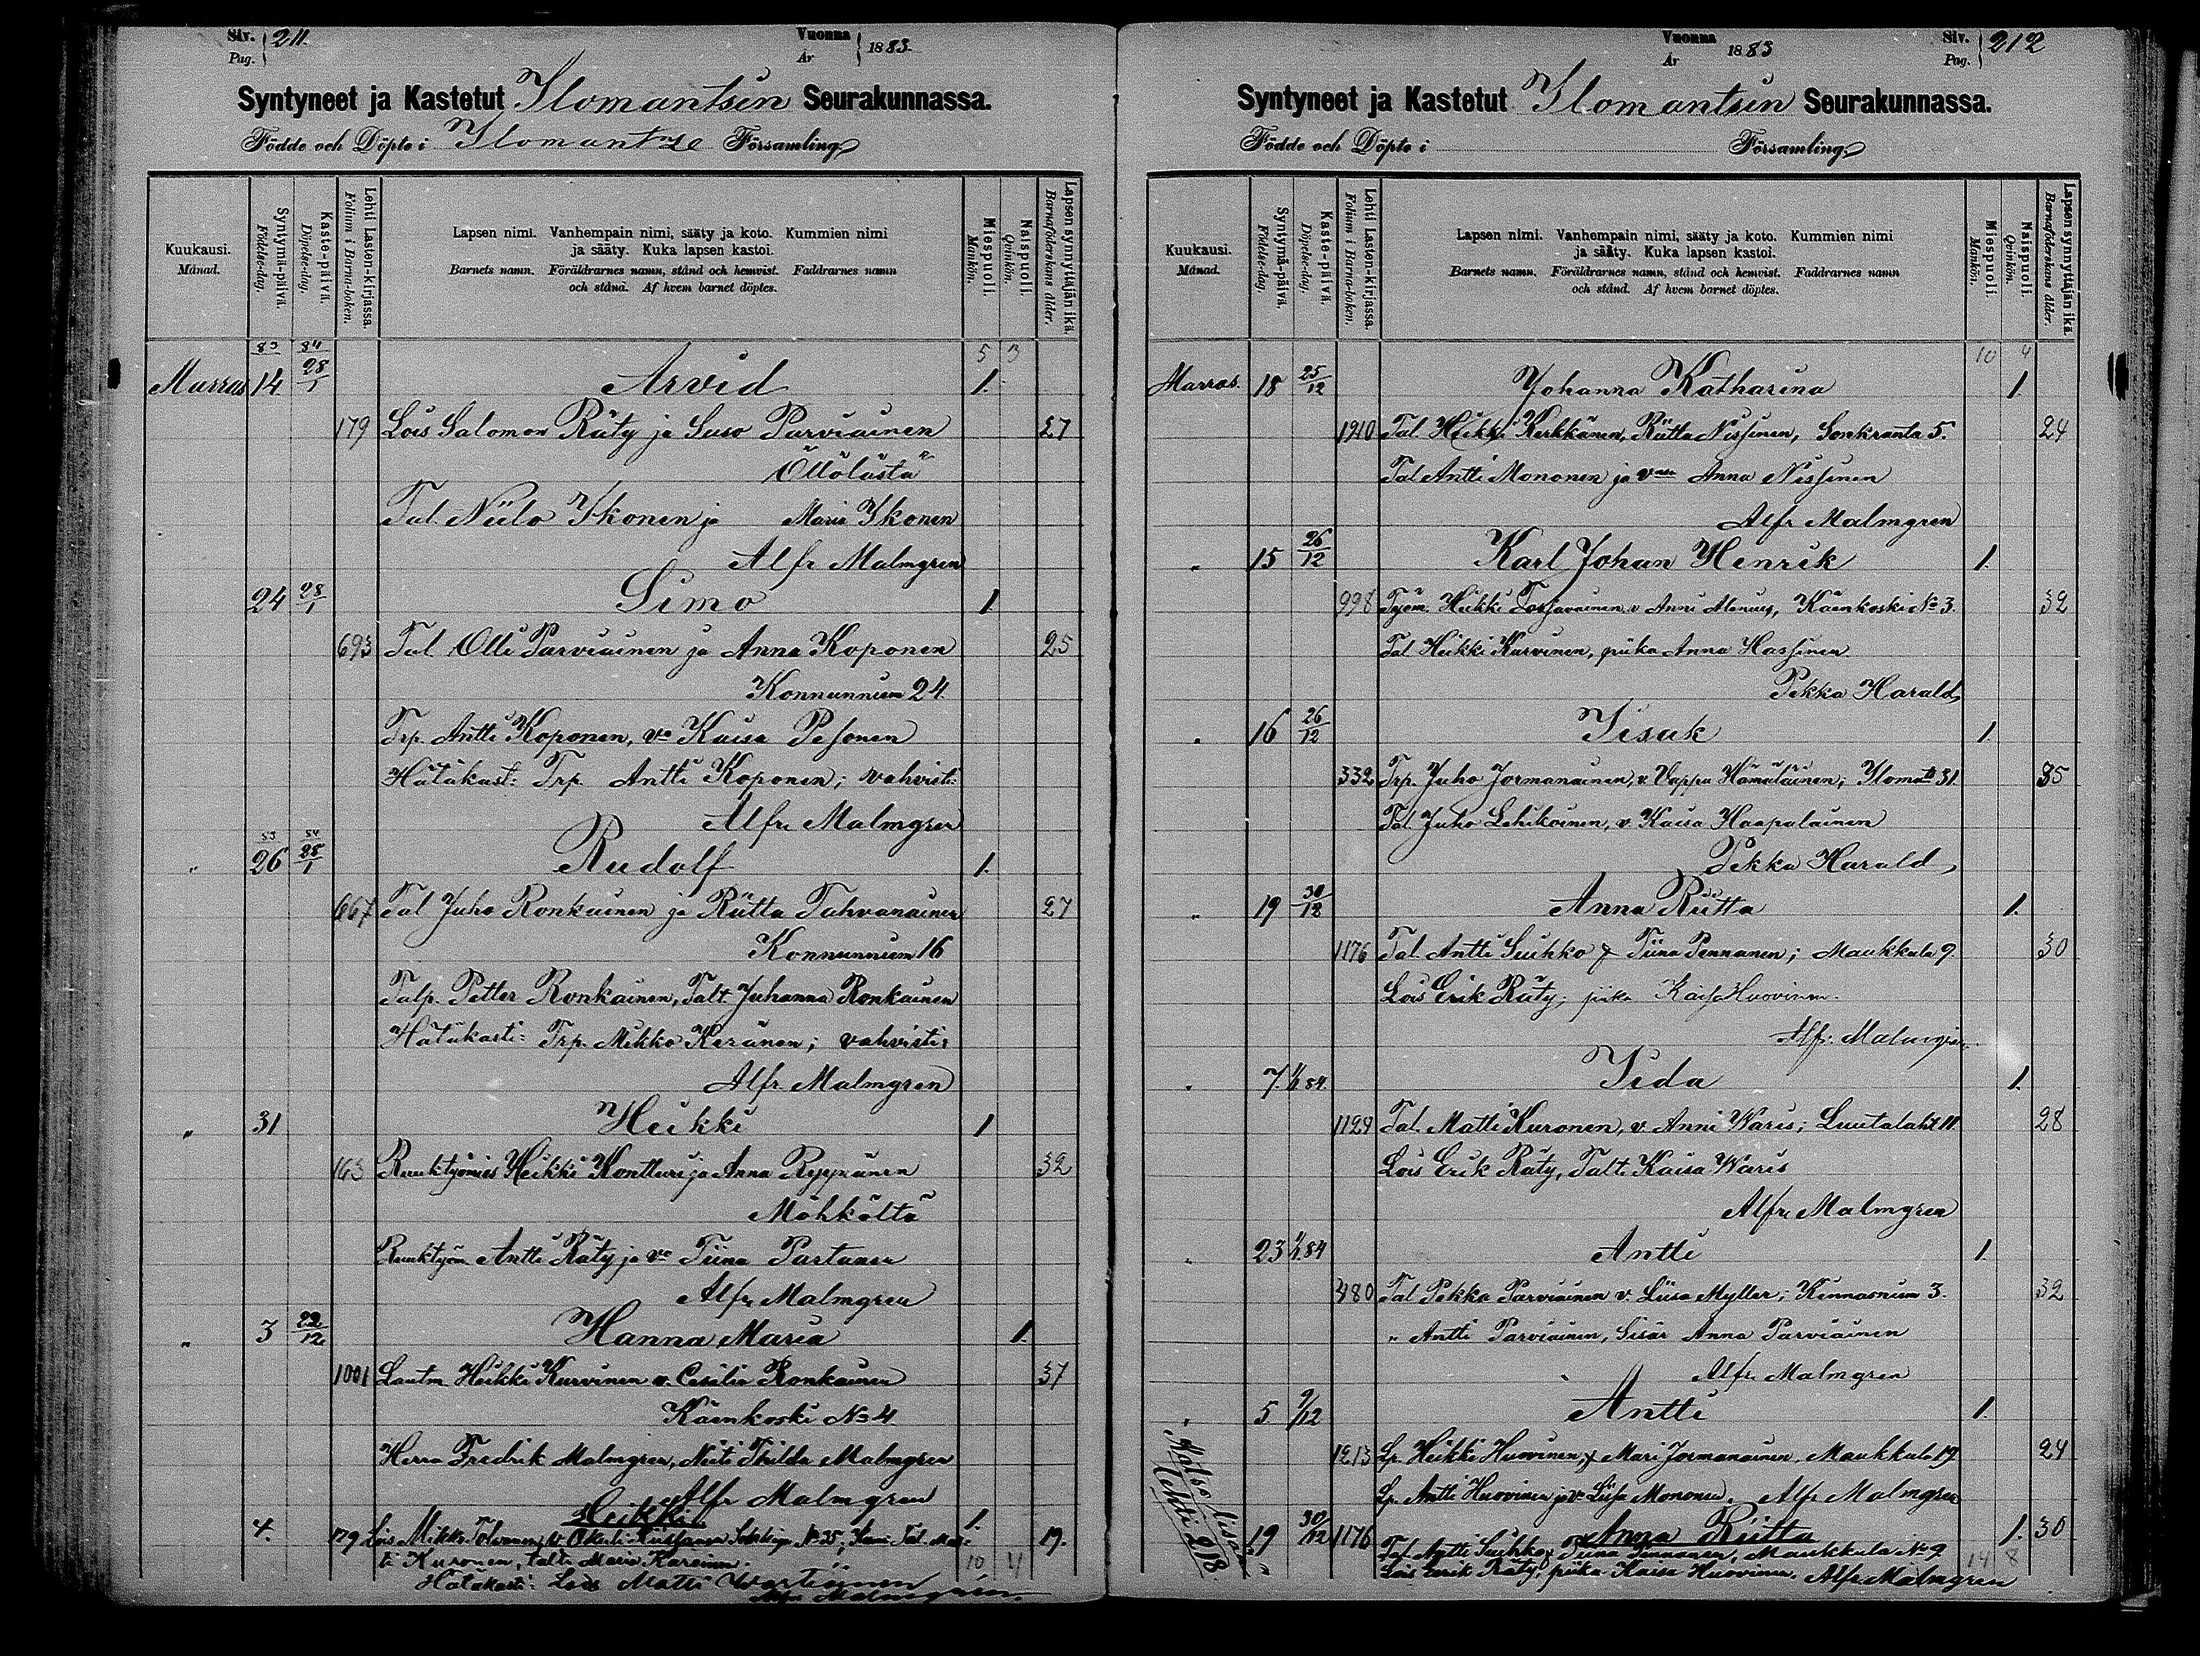 Siv. Pag. 211.
Vuonna År 1883.
Syntyneet ja Kastetut Ilomantsin Seurakunnassa.
Födde och Döpte i Ilomantze Församling
Kuukausi. Månad.
Syntymä-päivä. Födelse-dag.
Kaste-päivä. Döpelse-dag.
Lehti Lasten-kirjassa. Folium i Barna-boken.
Lapsen nimi. Vanhempain nimi, sääty ja koto. Kummien nimi
ja sääty. Kuka lapsen kastoi.
Barnets namn. Föräldrarnes namn, stånd och hemvist. Faddrarnes namn
och stånd. Af hvem barnet döptes.
Miespuoli. Mankön.
Naispuoli. Qvinkön.
Lapsen synnyttäjän ikä. Barnaföderskans ålder.
83 84 5 3
Marras 14 28/1 Arvid 1.
179 Lois Salomon Räty ja Suso Parviainen 27
Öllölästä
Tal. Niilo Ikonen ja Maria Ikonen
Alfr Malmgren
24 28/1 Simo 1
693 Tal Olli Parviainen ja Anna Koponen 25
Konnunnium 24
Trp. Antti Koponen, vo Kaisa Pesonen
Hätäkast: Trp. Antti Koponen; vahvisti:
Alfr. Malmgren
83 84
" 26 28/1 Rudolf 1.
667 Tal Juho Ronkainen ja Riitta Tahvanainen 27
Konnunnium 16
Talp. Petter Ronkainen, Talt. Juhanna Ronkainen
Hätäkasti: Trp. Mikko Keränen; vahvisti:
Alfr. Malmgren
" 31 Heikki 1
163 Ruuktyömies Heikki Kontturi ja Anna Ryppänen 32
Möhköltä
Ruuktyöm Antti Räty ja vo Tiina Partanen
Alfr Malmgren
" 3 22/12 Hanna Maria 1.
1001 Lautm Heikki Kurvinen v. Cesilia Ronkainen 37
Käenkoski No 4
Herra Fredrik Malmgren, Neiti Thilda Malmgren
Alfr Malmgren
4. Heikki 1.
179 Lois Mikko Tolvanen, v. 19.
ti Kuronen, talt. Maria 10 4
Hätäkasti: Lois Matti Wartiainen
Alfr Malmgren.
Vuonna År 1883
Siv. Pag. 212
Syntyneet ja Kastetut Ilomantsin Seurakunnassa.
Födde och Döpte i Församling
Kuukausi. Månad.
Syntymä-päivä. Födelse-dag.
Kaste-päivä. Döpelse-dag.
Lehti Lasten-kirjassa. Folium i Barna-boken.
Lapsen nimi. Vanhempain nimi, sääty ja koto. Kummien nimi
ja sääty. Kuka lapsen kastoi.
Barnets namn. Föräldrarnes namn, stånd och hemvist. Faddrarnes namn
och stånd. Af hvem barnet döptes.
Miespuoli. Mankön.
Naispuoli. Qvinkön.
Lapsen synnyttäjän ikä. Barnaföderskans ålder.
10 4
Marras. 18 25/12 Johanna Katharina 1.
1910 Tal. Heikki Kerkkänen, Riitta Nissinen, Sonkranta 5. 24
Tal Antti Mononen ja Anna Nissinen
Alfr Malmgren
" 15 26/12 Karl Johan Henrik 1.
998 Työm. Heikki Torjavainen v Anni Alenius, Käenkoski No 3. 32
Tal Heikki Kurvinen, piika Anna Hassinen.
Pekka Harald
" 16 26/12 Iisak 1.
332 Trp. Juho Jormanainen, v. Vappu Hämäläinen; Ilomts 31. 35
Tal Juho Lehikoinen, v Kaisa Haapalainen
Pekka Harald
" 19 30/12 Anna Riitta 1.
1176 Tal. Antti Suihko & Tiina Pennanen; Maukkula 9. 30
Lois Erik Räty; piika Kaisa Huovinen.
Alfr. Malmgren
" 7. 1/1 84. Iida 1.
1129 Tal. Matti Kuronen, v. Anni Waris; Luutalaht 11 28
Lois Erik Räty, Talt. Kaisa Waris
Alfr. Malmgren
" 23 1/1 84 Antti 1.
480 Tal Pekka Parviainen v. Liisa Myller; Kinnasnium 3. 32
" Antti Parviainen, Sisar Anna Parviainen
Alfr. Malmgren
" 5 9/12 Antti 1.
1213 Lp. Heikki Huovinen & Mari Jormanainen, Maukkula 19. 24
Lp. Antti Huovinen ja vo Liisa Mononen. Alfr Malmgren
Katso lisää lehti 218
" 19 30/12 1176 Anna Riitta 1. 30
Tal Antti Suihko & Tiina Pennanen, Maukkula No 9. 14 8
Lois Erik Räty, piika Kaisa Huovinen. Alfr Malmgren